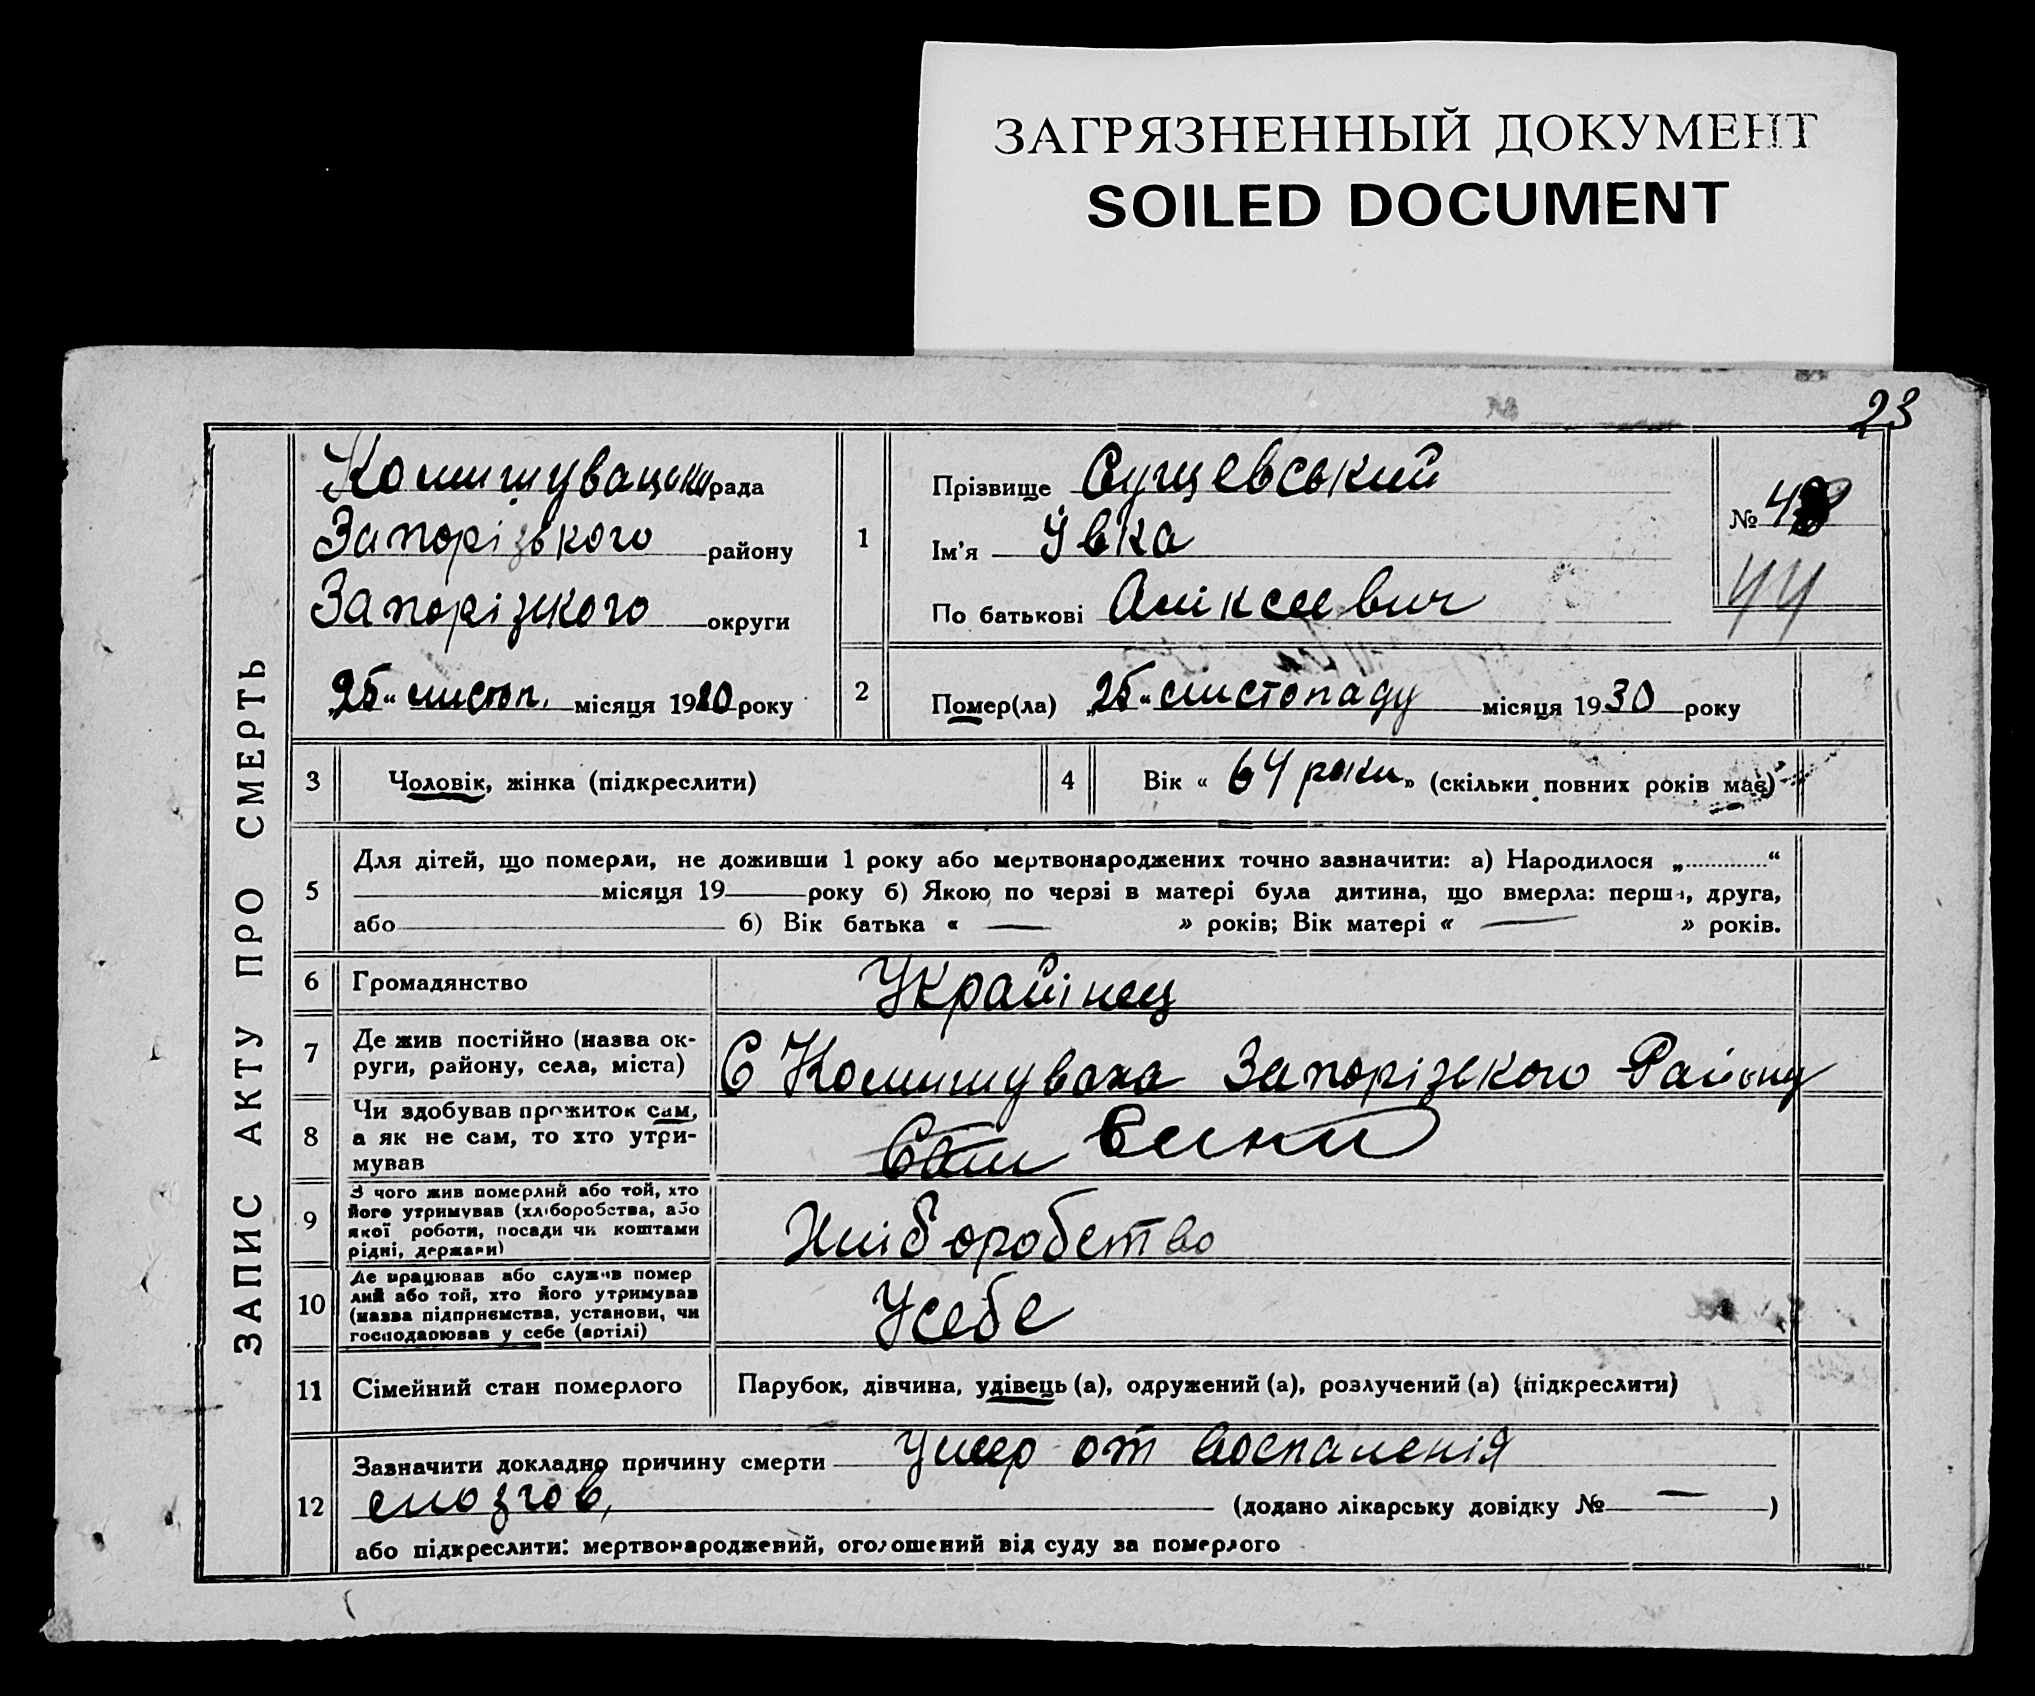 ЗАГРЯЗНЕННЫЙ ДОКУМЕНТ
SOILED DOCUMENT
23
ЗАПИС АКТУ ПРО СМЕРТЬ
Комишувацька рада
Запорізького району
Запорізкого округи
„25“ листоп. місяця 1930 року
1
Прізвище Сущевський
Ім'я Ивка
По батькові Аліксеевич
№ 43
44
2
Помер(ла) „25“ листопаду місяця 1930 року
3 Чоловік, жінка (підкреслити)
4 Вік « 64 роки » (скільки повних років має)
5
Для дітей, що померли, не доживши 1 року або мертвонароджених точно зазначити: а) Народилося „ “
місяця 19 року б) Якою по черзі в матері була дитина, що вмерла: перша, друга,
або б) Вік батька « — » років; Вік матері « — » років.
6 Громадянство Украйінец
7 Де жив постійно (назва ок-
руги, району, села, міста) С Комишуваха Запорізького Району
8 Чи здобував прожиток сам,
а як не сам, то хто утри-
мував Сам
9 З чого жив померлий або той, хто
його утримував (хліборобства, або
якої роботи, посади чи коштами
рідні, держави) Хліборобство
10 Де працював або служив помер
лий або той, хто його утримував
(назва підприємства, установи, чи
господарював у себе (артілі) Усебе
11 Сімейний стан померлого Парубок, дівчина, удівець (а), одружений (а), розлучений (а) (підкреслити)
12
Зазначити докладно причину смерти умер от воспаленія
мозгов, (додано лікарську довідку № — )
або підкреслити: мертвонароджений, оголошений від суду за померлого